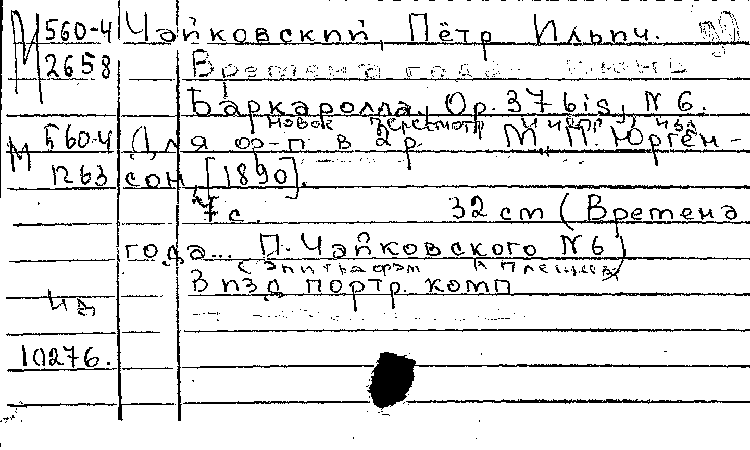 М 560-4 Чайковский, Пётр Ильич.
2658 Времена года... Июнь
Баркаролла, Op. 37 bis, N 6.
новое пересмотр и испр изд
М 560-4 Для ф-п. в 2 р. М., П. Юрген-
1263 сон, [1890].
7 с. 32 cm (Времена
года... П. Чайковского N 6)
С эпиграфом А Плещеева
В изд портр. комп
10276.